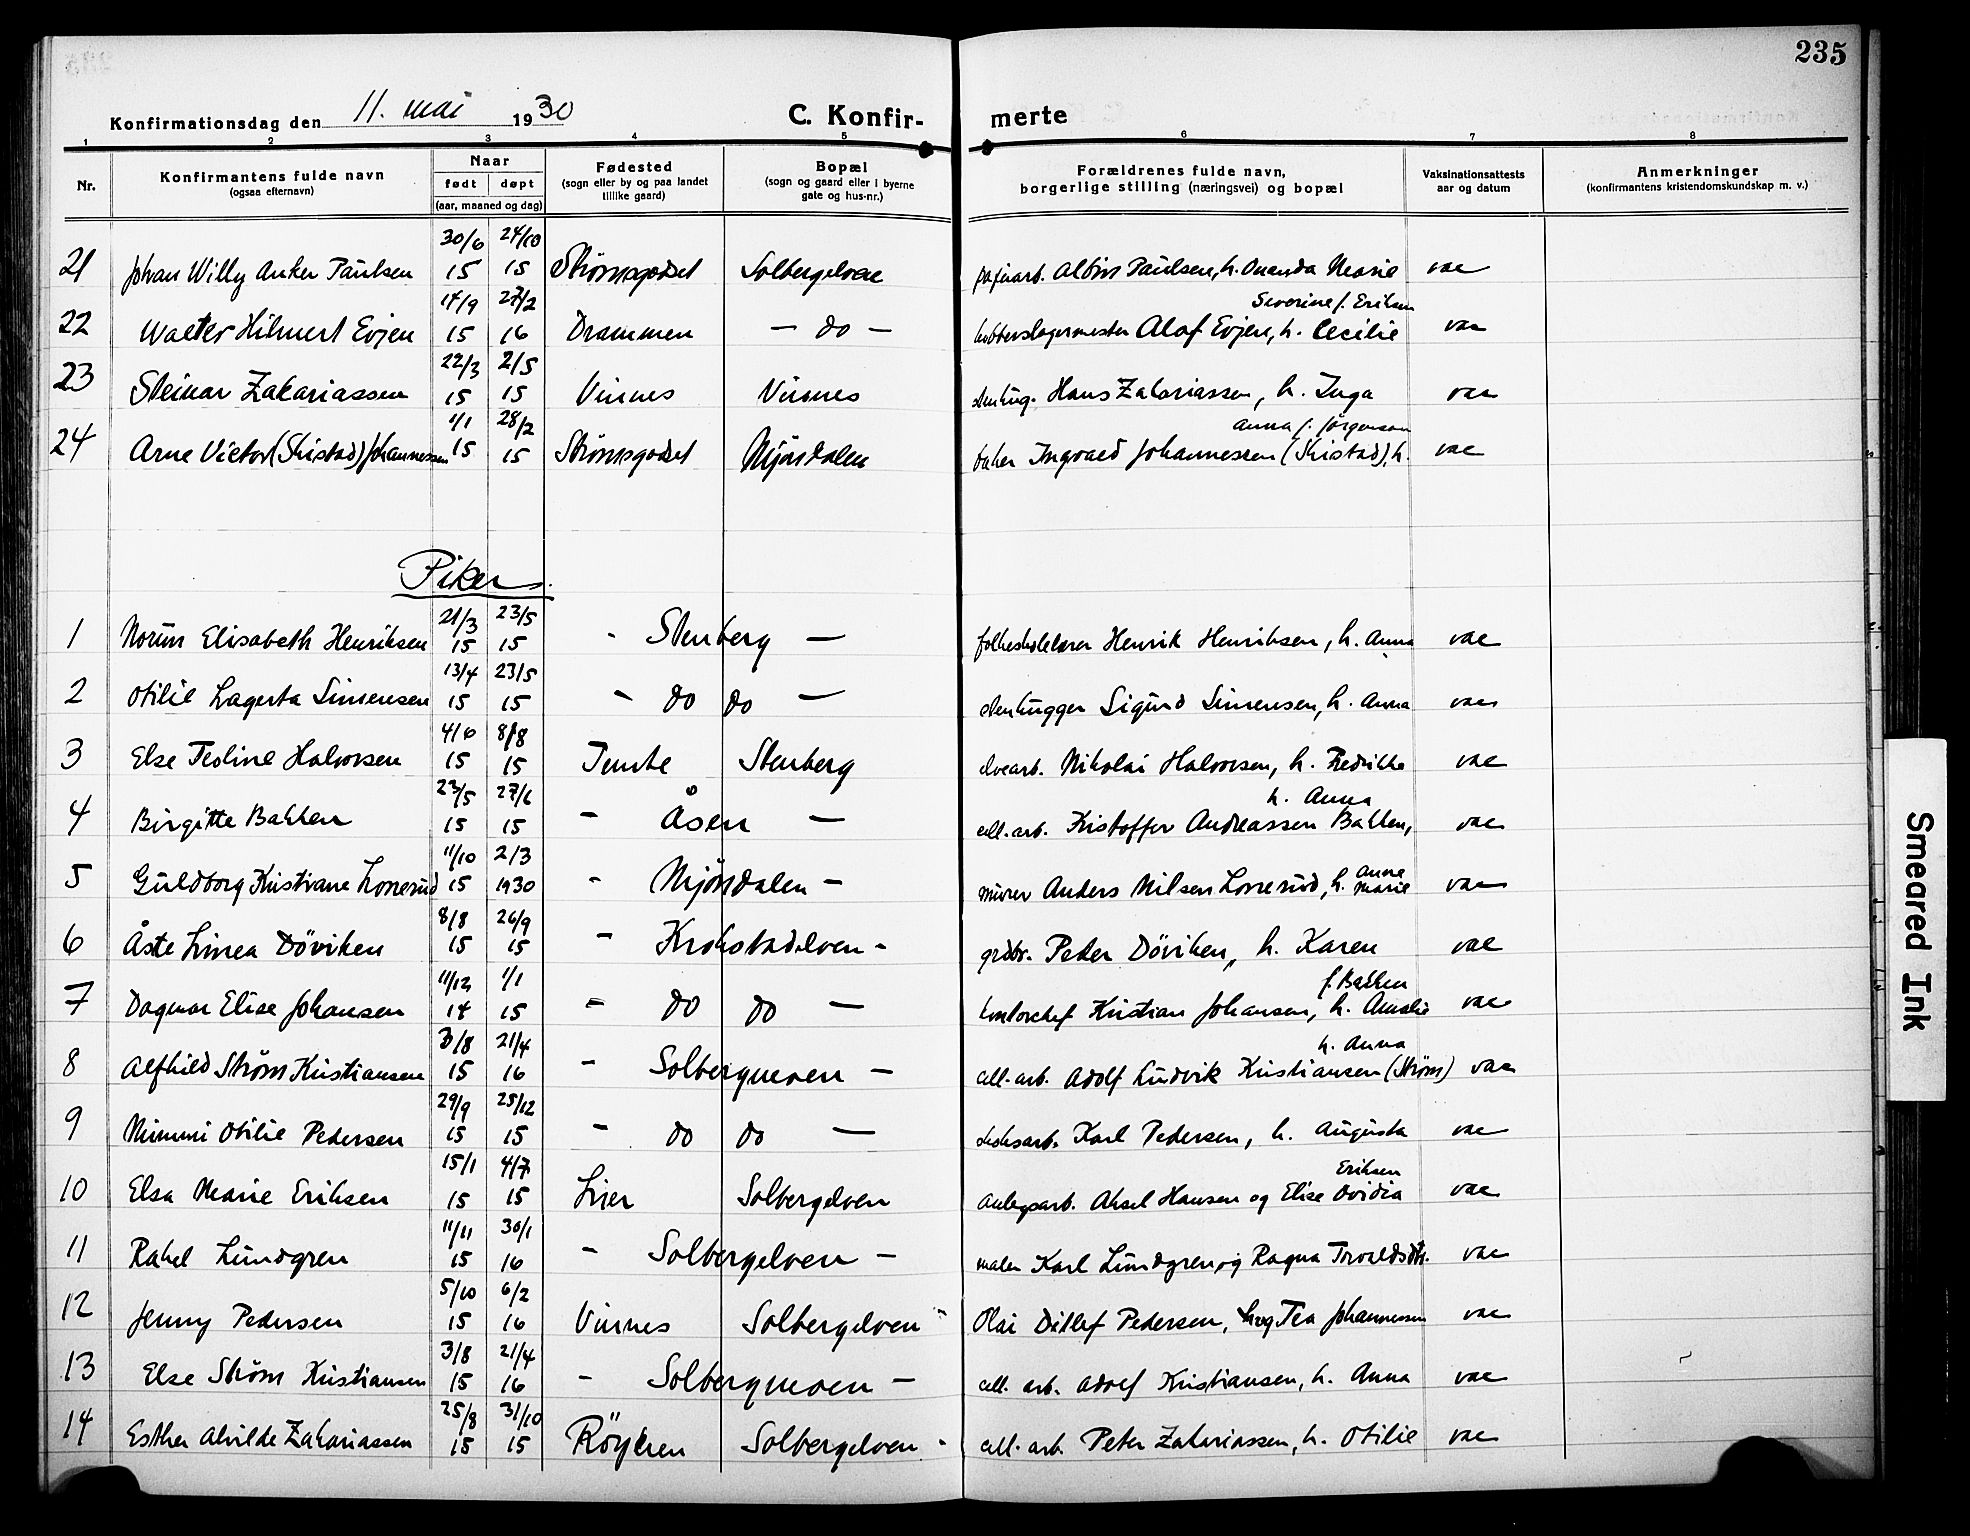 235
Konfirmationsdag den 11. mai 1930 C. Konfir- merte
1 2 3 4 5 6 7 8
Nr. Konfirmantens fulde navn (ogsaa efternavn) Naar født døpt (aar, maaned og dag) Fødested (sogn eller by og paa landet tillike gaard) Bopæl (sogn og gaard eller i byerne gate og hus-nr.) Forældrenes fulde navn, borgerlige stilling (næringsvei) og bopæl Vaksinationsattests aar og datum Anmerkninger (konfirmantens kristendomskundskap m. v.)
30/6 24/10
21 Johan Willy Anker Paulsen 15 15 Strømsgodset Solbergelven Albin Paulsen, h. Amanda Marie vac
14/9 27/2 Severine f. Eriksen
22 Walter Hilmert Evjen 15 16 Drammen - do - kobberslagermester Alaf Evjen, h. Cecilie vac
22/3 2/5
23 Steinar Zakariassen 15 15 Vinnes Vinnes stenhug. Hans Zakariassen, h. Inga vac
1/1 28/2 Anna f. Jörgensen
24 Arne Victor (Skistad) Johannessen 15 15 Strømsgodset Mjöndalen baker Ingvald Johannessen (Skistad), h. vac
Piker.
21/3 23/5
1 Norun Elisabeth Henriksen 15 15 - Stenberg - folkeskolelærer Henrik Henriksen, h. Anna vac
13/4 23/5
2 Otilie Lagerta Simensen 15 15 - do do - stenhugger Sigurd Simensen, h. Anna vac
4/6 8/8
3 Else Teoline Halvorsen 15 15 Stenberg elvearb. Nikolai Halvorsen, h. Fredrikke vac
22/5 27/6 h. Anna
4 Birgitte Bakken 15 15 - Åsen - cell. arb. Kristoffer Andreassen Bakken, vac
11/10 2/3
5 Guldborg Kristiane Lonerud 15 1930 - Mjöndalen - murer Anders Nilsen Lonerud, h. Anne Marie vac
8/8 26/9
6 Åste Linea Döviken 15 15 - Krokstadelven - grdbr. Peder Döviken, h. Karen vac
11/12 1/1 f. Bakken
7 Dagmar Elise Johansen 14 15 - do do - kontorchef Kristian Johansen, h. Amalie vac
3/8 21/4 h. Anna
8 Alfhild Strøm Kristiansen 15 16 - Solbergmoen - cell. arb. Adolf Ludvik Kristiansen (Strøm) vac
29/9 25/12
9 Mimmi Otilie Pedersen 15 15 - do do - Karl Pedersen, h. Augusta vac
15/1 4/7 Eriksen
10 Elsa Marie Eriksen 15 15 Lier Solbergelven anlegsarb. Aksel Hansen og Elise Ovidia vac
11/11 30/1
11 Rakel Lundgren 15 16 - Solbergelven - maler Karl Lundgren, og Ragna Torvaldsdtr. vac
5/10 6/2
12 Jenny Pedersen 15 16 Vinnes Solbergelven Olai Ditlef Pedersen, og Tea Johannessen vac
3/8 21/4
13 Else Strøm Kristiansen 15 16 - Solbergmoen - cell. arb. Adolf Kristiansen, h. Anna vac
25/8 31/10
14 Esther Alvilde Zakariassen 15 15 Röyken Solbergelven cell. arb. Peter Zakariassen, h. Otilie vac
Smeared Ink